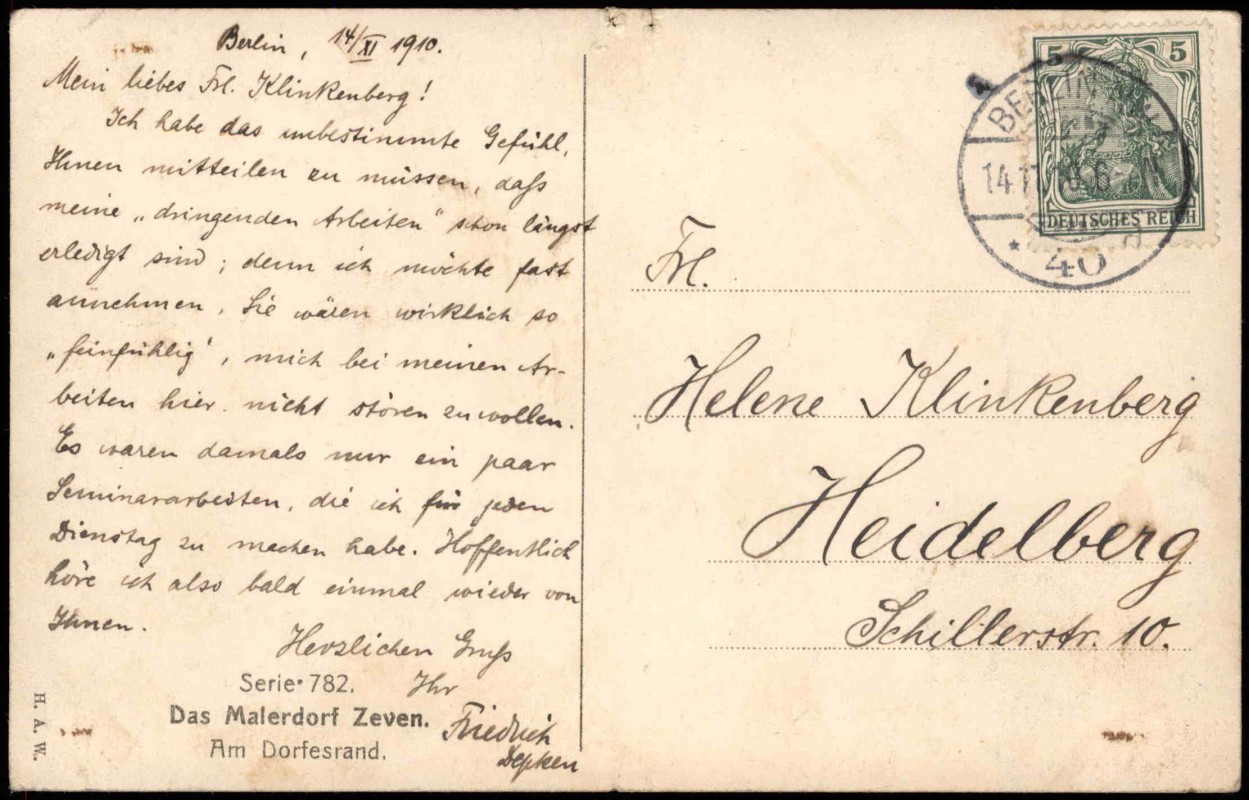 Berlin, 14/XI 1910.
Mein liebes Frl. Klinkenberg!
Ich habe das unbestimmte Gefühl,
Ihnen mitteilen zu müssen, daß
meine „dringenden Arbeiten" schon längst
erledigt sind; denn ich möchte fast
annehmen, Sie wären wirklich so
„feinfühlig", mich bei meinen Ar-
beiten hier nicht stören zu wollen.
Es waren damals nur ein paar
Seminararbeiten, die ich für jeden
Dienstag zu machen habe. Hoffentlich
höre ich also bald einmal wieder von
Ihnen.
Herzlichen Gruß
Ihr
Friedrich
Depken
Serie 782.
Das Malerdorf Zeven.
Am Dorfesrand.
H. A. W.
5 5
DEUTSCHES REICH
BERLIN
14.11
* 40
Frl.
Helene Klinkenberg
Heidelberg
Schillerstr. 10.